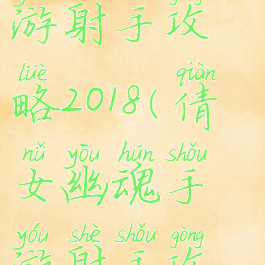 游射手攻
lüè qiàn
略2018(倩
nǚ yōu hún shǒu
女幽魂手
yóu shè shǒu gōng
游射手攻